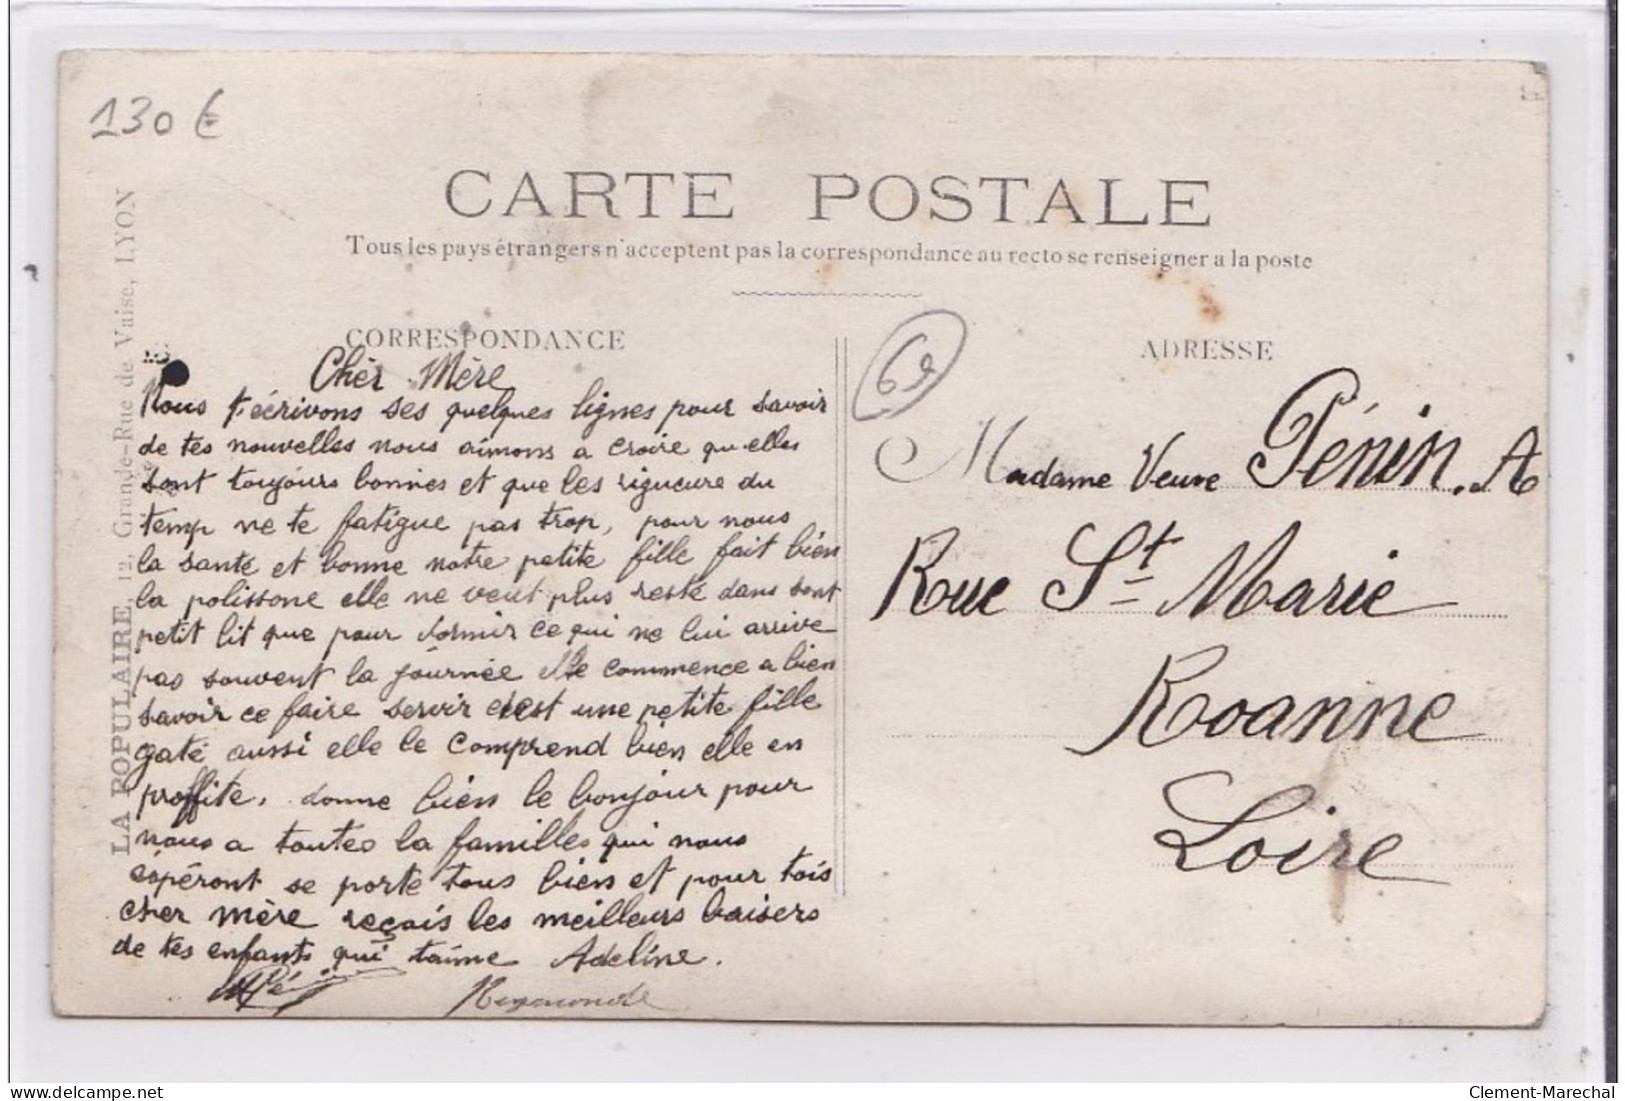 130 €
CARTE POSTALE
Tous les pays étrangers n'acceptent pas la correspondance au recto se renseigner a la poste
LA POPULAIRE, 12, Grande-Rue de Vaise, LYON
CORRESPONDANCE
Chèr Mère
Nous t'écrivons ses quelques lignes pour savoir
de tes nouvelles nous aimons a croire qu'elles
sont toujours bonnes et que les rigueure du
temp ne te fatigue pas trop, pour nous
la santé et bonne notre petite fille fait bien
la polissone elle ne veut plus resté dans sont
petit lit que pour dormir ce qui ne lui arrive
pas souvent la journée Elle commence a bien
savoir ce faire servir c'est une petite fille
gaté aussi elle le comprend bien elle en
proffite. donne bien le bonjour pour
nous a toutes la familles qui nous
espéront se porte tous bien et pour tois
cher mère reçais les meilleurs baisers
de tes enfants qui t'aime Adeline.
Raymonde
69
ADRESSE
Madame Veuve Pénin. A
Rue St Marie
Roanne
Loire
delcampe.net
Clement-Marechal